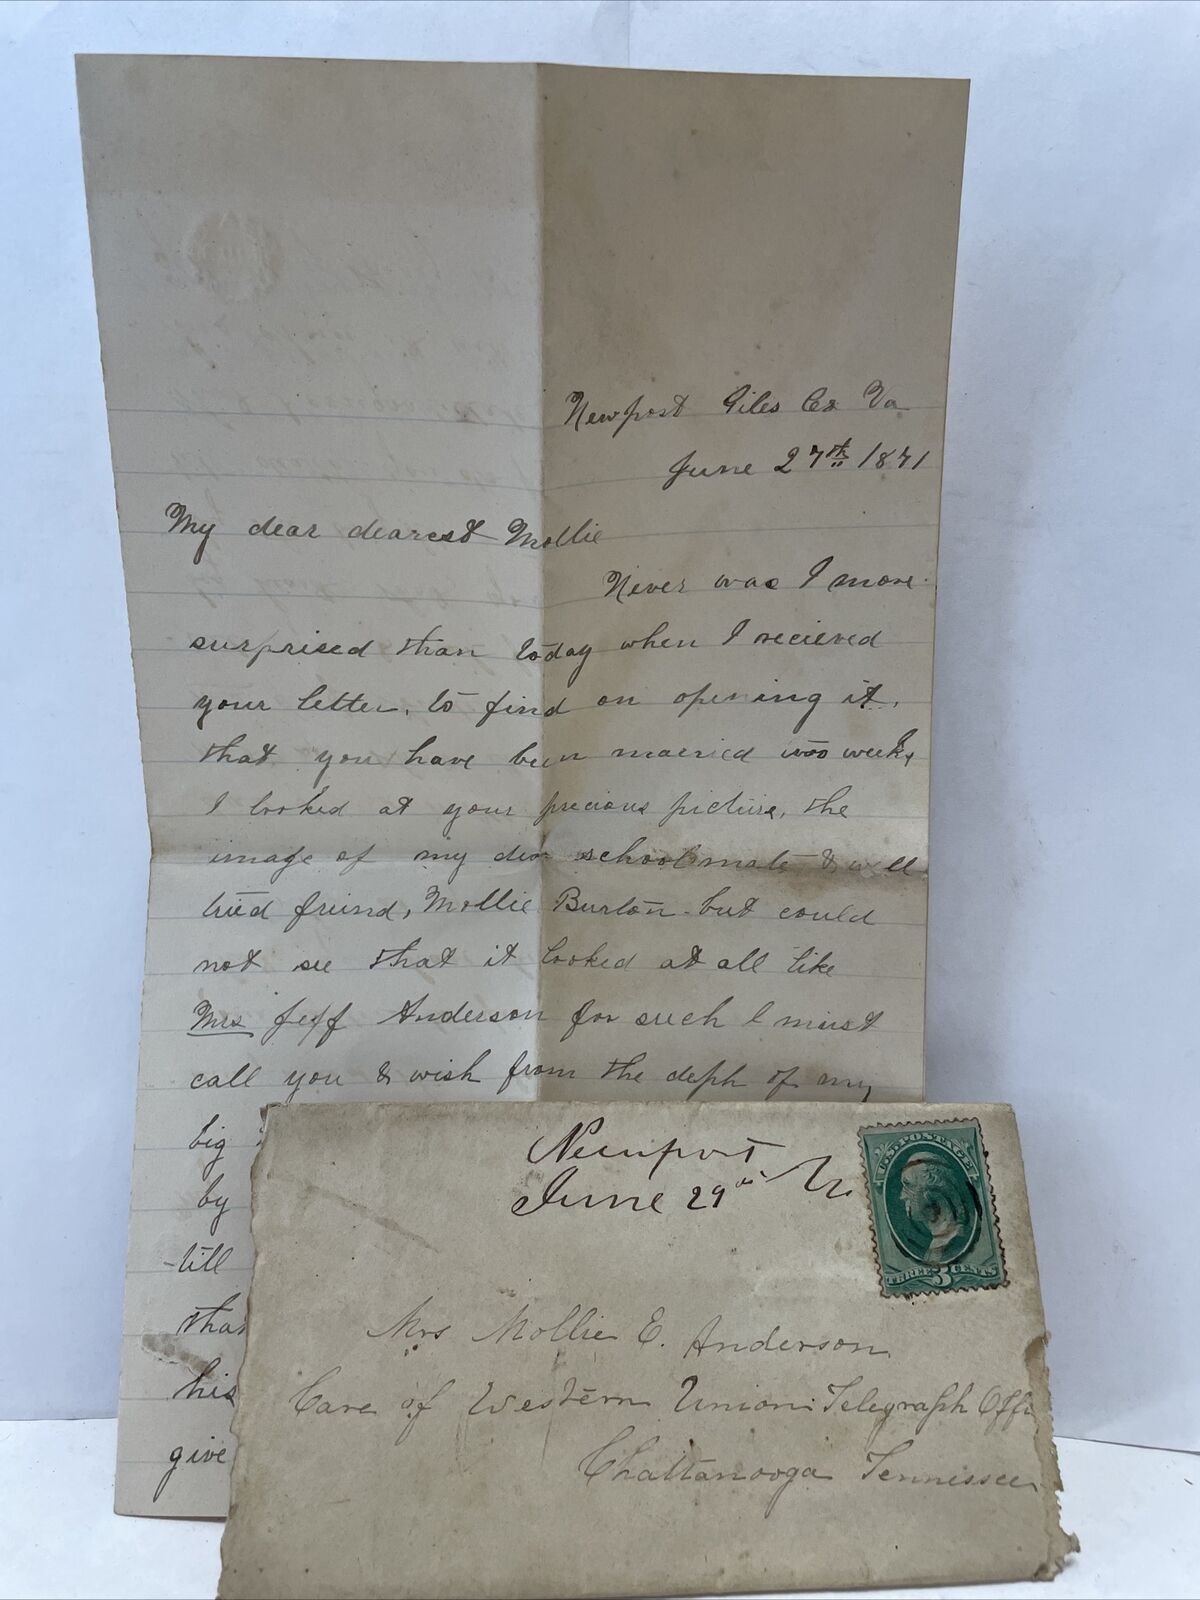 Newport Giles Co Va
June 27th 1871
My dear dearest Mollie
Never was I more
surprised than today when I recieved
your letter, to find on opening it,
that you have been married two weeks,
I looked at your precious picture, the
image of my dear schoolmate & well
tried friend, Mollie Burton but could
not see that it looked at all like
Mrs Jeff Anderson for such I must
call you & wish from the deph of my
big
by
till
that
his
give
Newport Va
June 29th
U.S. POSTAGE
THREE 3 CENTS
Mrs Mollie E. Anderson
Care of Western Union Telegraph Offi
Chattanooga Tennissee